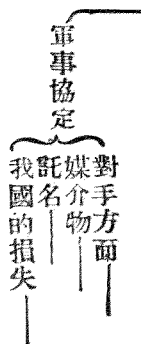 軍事協定
對手方面
媒介物
託名
我國的損失